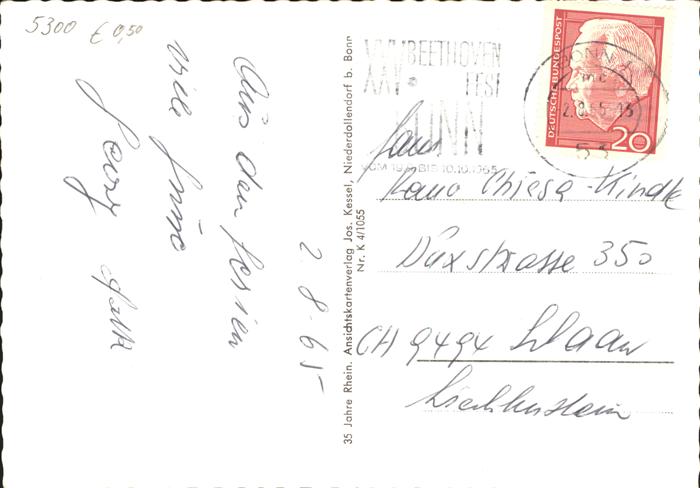 5300 € 0,50
Aus den Ferien
viele Grüsse
2.8.65
35 Jahre Rhein. Ansichtskartenverlag Jos. Kessel, Niederdollendorf b. Bonn
Nr. K 4/1055
BEETHOVEN
FEST
BONN
BIS 10.10.1965
BONN
2.8.65-15
53
DEUTSCHE BUNDESPOST
20
Chiesa-Kindle
Duxstrasse 350
CH 9494 Schaan
Liechtenstein